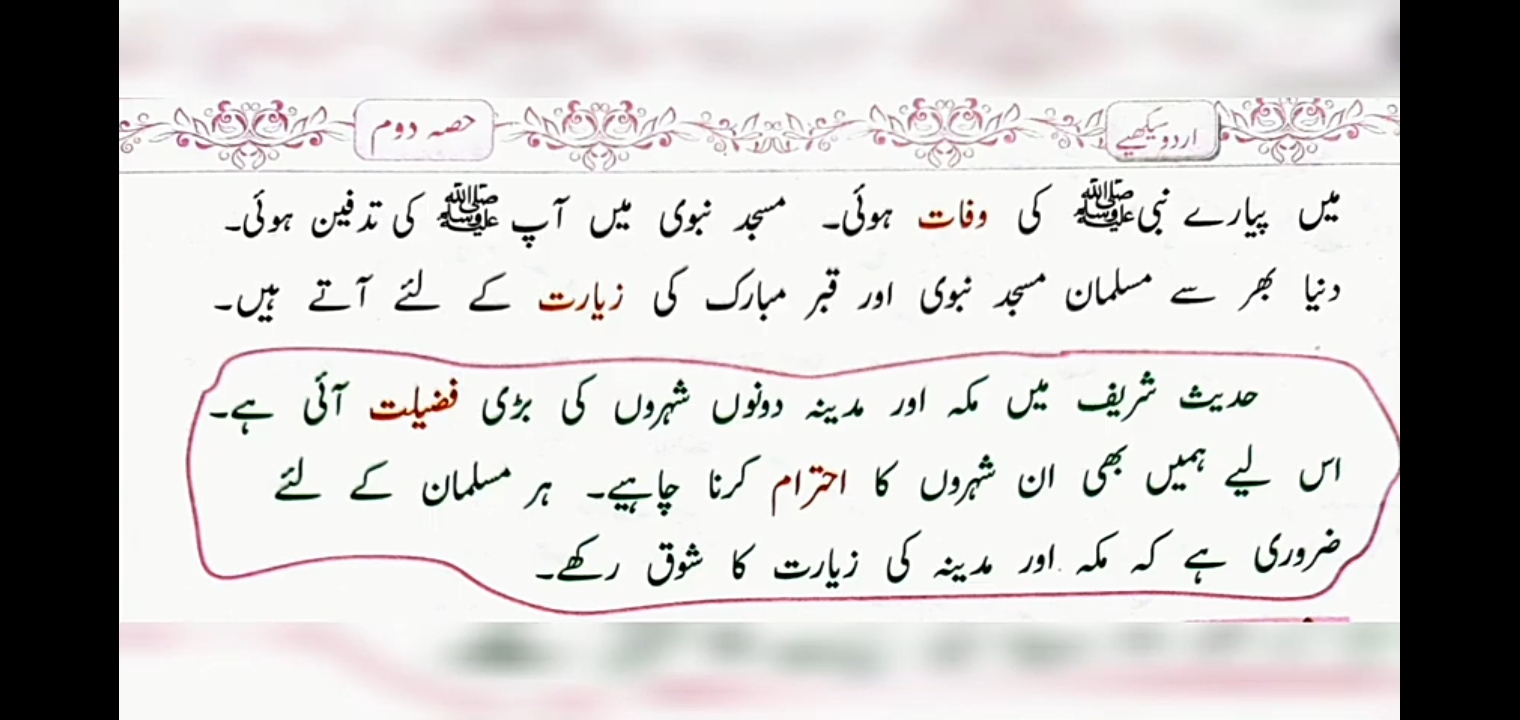 اردو سیکھیے حصہ دوم
میں پیارے نبی ﷺ کی وفات ہوئی۔ مسجد نبوی میں آپ ﷺ کی تدفین ہوئی۔
دنیا بھر سے مسلمان مسجد نبوی اور قبر مبارک کی زیارت کے لئے آتے ہیں۔
حدیث شریف میں مکہ اور مدینہ دونوں شہروں کی بڑی فضیلت آئی ہے۔
اس لیے ہمیں بھی ان شہروں کا احترام کرنا چاہیے۔ ہر مسلمان کے لئے
ضروری ہے کہ مکہ اور مدینہ کی زیارت کا شوق رکھے۔